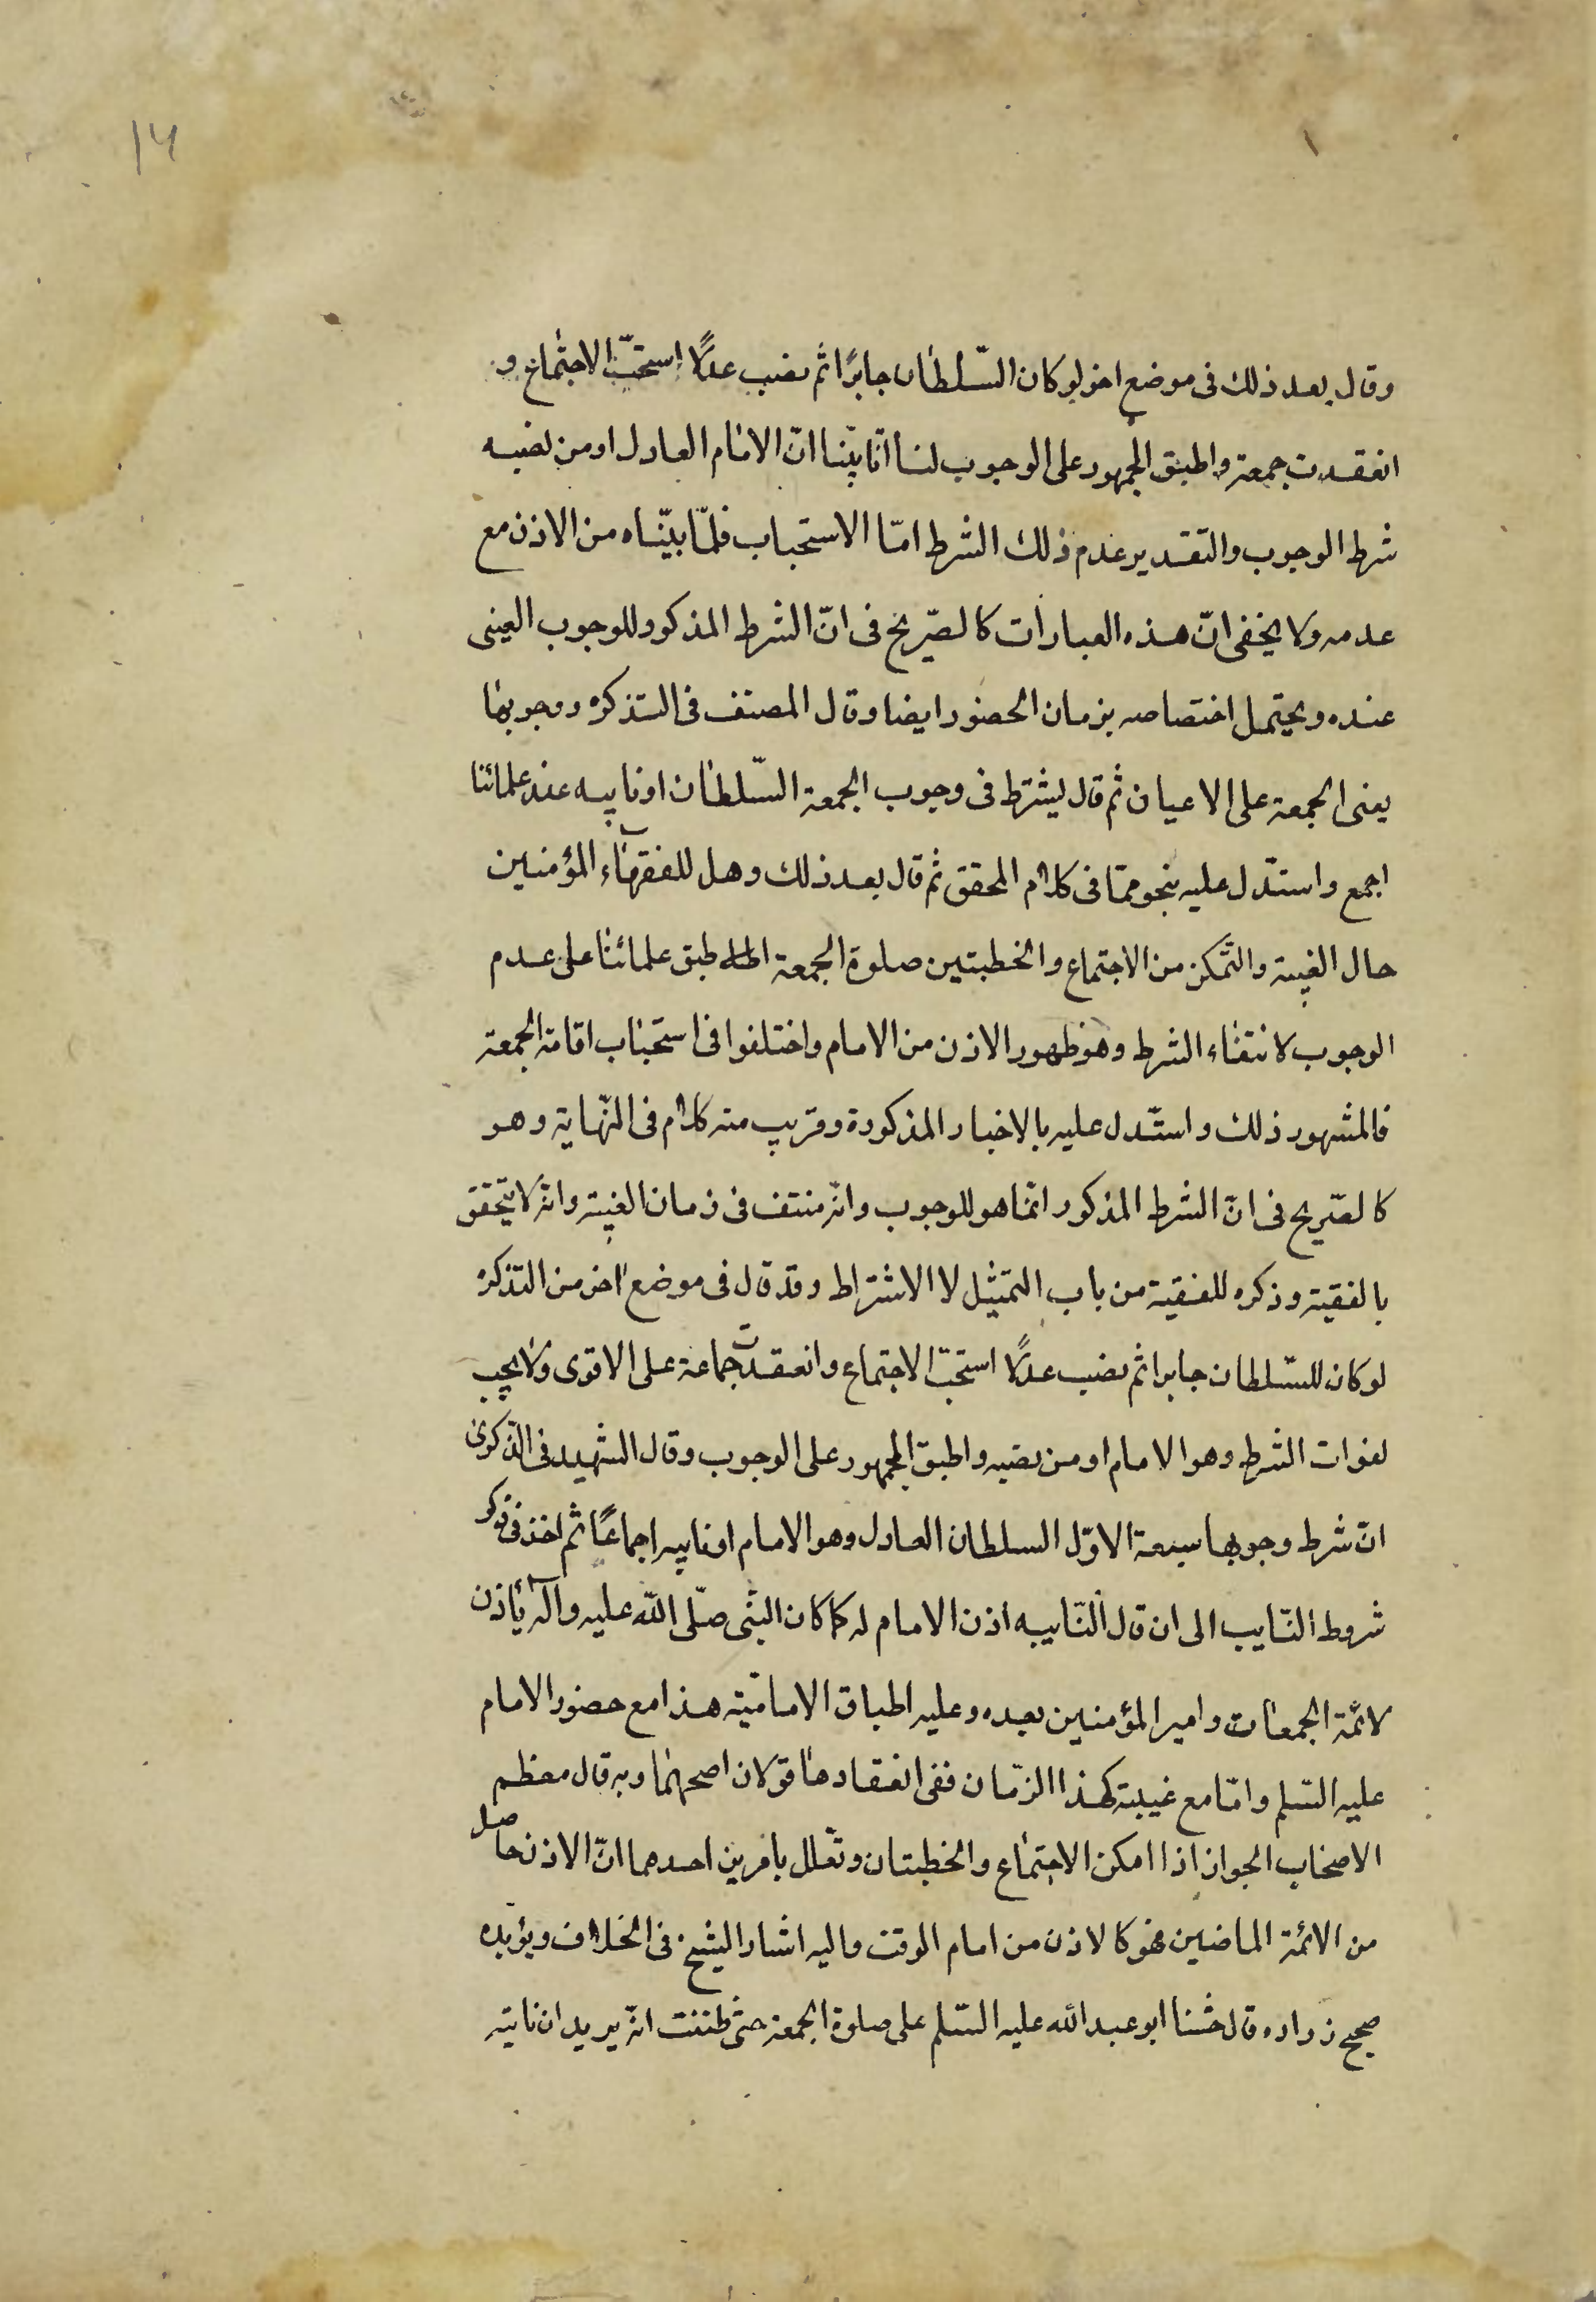 ١٤
وقال بعد ذلك فى موضع اخر لو كان السّلطان جابرًا ثم نصب عدلًا استحبّ الاجتماع و
انعقدت جمعة واطبق الجمهور على الوجوب لنا انّا بيّنا انّ الامام العادل او من نصبه
شرط الوجوب والتقدير عدم ذلك الشرط امّا الاستحباب فلمّا بيّناه من الاذن مع
عدمه ولا يخفى انّ هذه العبارات كالصّريح فى انّ الشرط المذكور للوجوب العينى
عنده ويحتمل اختصاصه بزمان الحضور ايضا وقال المصنف فى التذكره ووجوبها
يعنى الجمعة على الاعيان ثم قال يشترط فى وجوب الجمعة السّلطان او نايبه عند علمائنا
اجمع واستدّل عليه بنحو ممّا فى كلام المحقق ثم قال بعد ذلك وهل للفقهاء المؤمنين
حال الغيبة والتّمكن من الاجتماع والخطبتين صلوة الجمعة اطبق علمائنا على عدم
الوجوب لانتفاء الشرط وهو ظهور الاذن من الامام واختلفوا فى استحباب اقامة الجمعة
فالمشهور ذلك واستّدل عليه بالاخبار المذكورة وقريب منه كلام فى النّهاية وهو
كالصّريح فى انّ الشرط المذكور انّما هو للوجوب وانّه منتف فى زمان الغيبة وانّه لا يتحقق
بالفقيه وذكره للفقيه من باب التمثيل لا الاشتراط وقد قال فى موضع اخر من التذكره
لو كان للسّلطان جابرا ثم نصب عدلًا استحبّ الاجتماع وانعقدت جماعة على الاقوى ولا يجب
لفوات الشرط وهو الامام او من نصبه واطبق الجمهور على الوجوب وقال الشهيد فى الذّكرى
انّ شرط وجوبها سبعة الاوّل السلطان العادل وهو الامام او نايبه اجماعًا ثم اخذ فى ذكر
شروط النّايب الى ان قال النّايبه اذن الامام له كما كان النبى صلّى الله عليه وآله يأذن
لائمّة الجمعات وامير المؤمنين بعده وعليه اطباق الاماميّة هذا مع حضور الامام
عليه السّلم وامّا مع غيبته كهذا الزّمان ففى انعقادها قولان اصحهما وبه قال معظم
الاصحاب الجواز اذا امكن الاجتماع والخطبتان وتعلل بامرين احدهما انّ الاذن حاصل
من الائمّة الماضين فهو كالاذن من امام الوقت واليه اشار الشيخ فى الخلاف ويؤيده
صحيح زراره قال حثّنا ابو عبد الله عليه السّلم على صلوة الجمعة حتى ظننت انّه يريد ان ناتيه